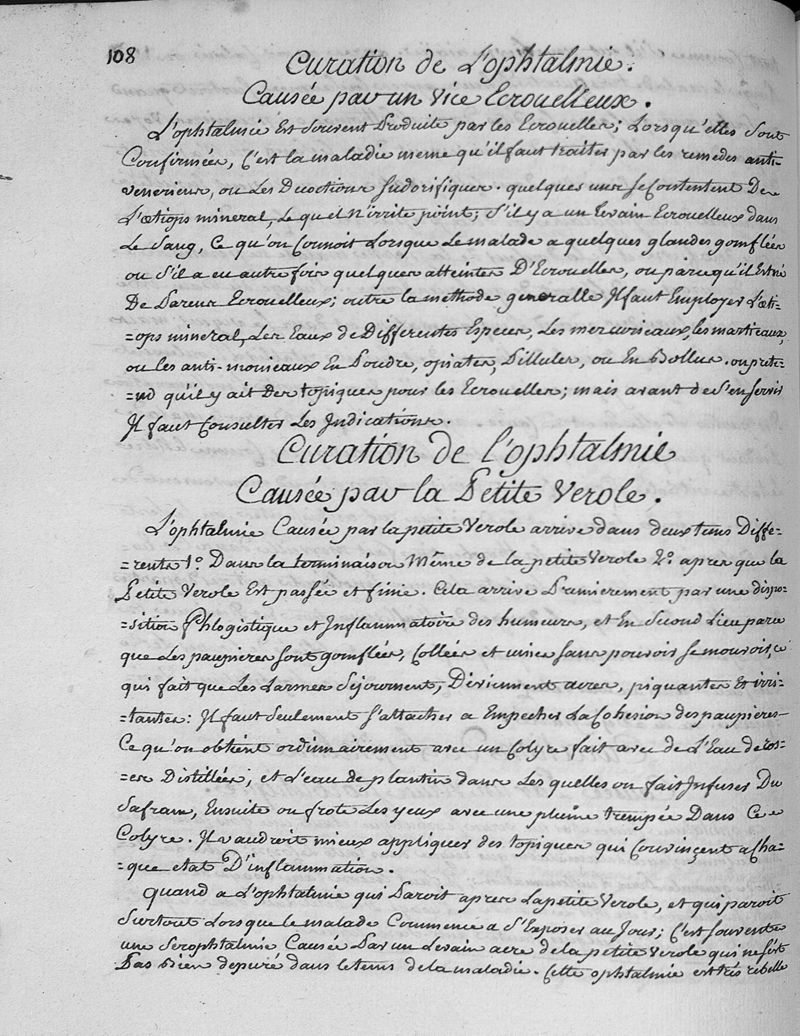 108
Curation de L'ophtalmie.
Causée par un vice Ecrouelleux.
L'ophtalmie Est souvent Produite par les Ecrouelles; Lorsqu'elles Sont
Confirmées, C'est la maladie meme qu'il faut traiter par les remedes anti-
veneriens, ou Les Decoctions Sudorifiques. quelques uns se Contentent De
L'œtiops mineral, Le quel N'irrite point; S'il y a un Levain Ecrouelleux dans
Le Sang, Ce qu'on Connoit Lorsque Le malade a quelques glandes gomflées
ou S'il a eu autre fois quelques atteintes D'Ecrouelles, ou parce qu'il Est né
De Parens Ecrouelleux; outre la methode generalle Il faut Employer L'œti-
=ops mineral, Les Eaux de Differentes Especes, Les mercuriaux, les martiaux,
ou les anti-moniaux En Poudre, opiates, Pillules, ou En Bollus. on prete-
=nd qu'il y ait Des topiques pour les Ecrouelles; mais avant de S'en servir
Il faut Consulter Les Indications.
Curation de l'ophtalmie
Causée par la Petite Verole.
L'ophtalmie Causée par la petite Verole arrive dans deux tems Diffe-
=rents 1º. Dans la terminaison Même de la petite Verole 2º. apres que la
Petite Verole Est passée et finie. Cela arrive Premierement par une dispo-
=sition Phlogistique et Inflammatoire des humeurs, et En Second Lieu parce
que Les paupieres sont gomflées, Collées et unies sans pouvoir se mouvoir, ce
qui fait que Les Larmes Sejournent, Deviennent acres, piquantes Et irri-
=tantes: Il faut Seulement S'attacher a Empecher La Cohesion des paupieres
Ce qu'on obtient ordinairement avec un Colyre fait avec de L'Eau de ros-
=es Distillées, et L'eau de plantin dans Les quelles on fait Infuser Du
Safran, Ensuite on frote Les yeux avec une plume trempée Dans Ce
Colyre. Il vaudroit mieux appliquer des topiques qui Convinçent a Cha-
=que etat D'inflammation.
Quand a L'ophtalmie qui Paroit apres La petite Verole, et qui paroit
Surtout Lorsque le malade Commence a S'Exposer au Jour; C'est souvent
une Serophtalmie Causée Par un Levain acre de la petite Verole qui ne s'est
Pas Bien depuré dans le tems de la maladie. Cette ophtalmie est très rebelle